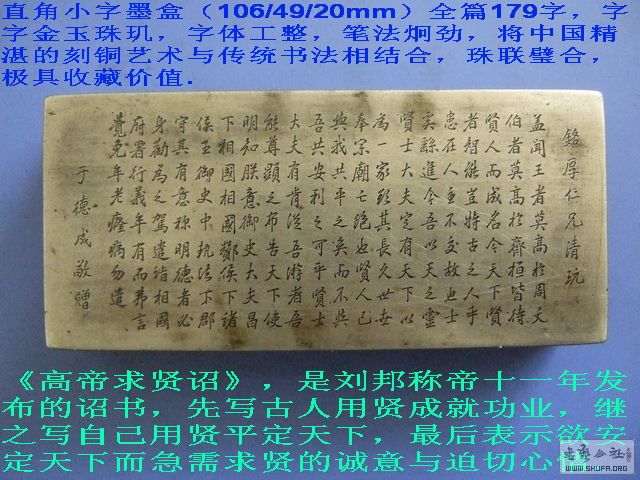 直角小字墨盒（106/49/20mm）全篇179字，字
字金玉珠玑，字体工整，笔法炯劲，将中国精
湛的刻铜艺术与传统书法相结合，珠联璧合，
极具收藏价值.
銘厚仁兄清玩
蓋聞王者莫高於周文
伯者莫高於齊桓皆待
賢人而成名今天下賢
者智能豈特古之人乎
患在人主不交故也士
奚繇進今吾以天之靈
賢士大夫定有天下以
為一家欲其長久世世
奉宗廟亡絕也賢人已
與我共平之矣而不與
吾共安利之可乎賢士
大夫有肯從吾游者吾
能尊顯之布告天下使
明知朕意御史大夫昌
下相國相國酇侯下諸
侯王御史中執法下郡
守其有意稱明德者必
身勸為之駕遣詣相國
府署行義年有而弗言
覺免年老癃病勿遣
于德成敬贈
《高帝求贤诏》，是刘邦称帝十一年发
布的诏书，先写古人用贤成就功业，继
之写自己用贤平定天下，最后表示欲安
定天下而急需求贤的诚意与迫切心情
WWW.SHUFA.ORG